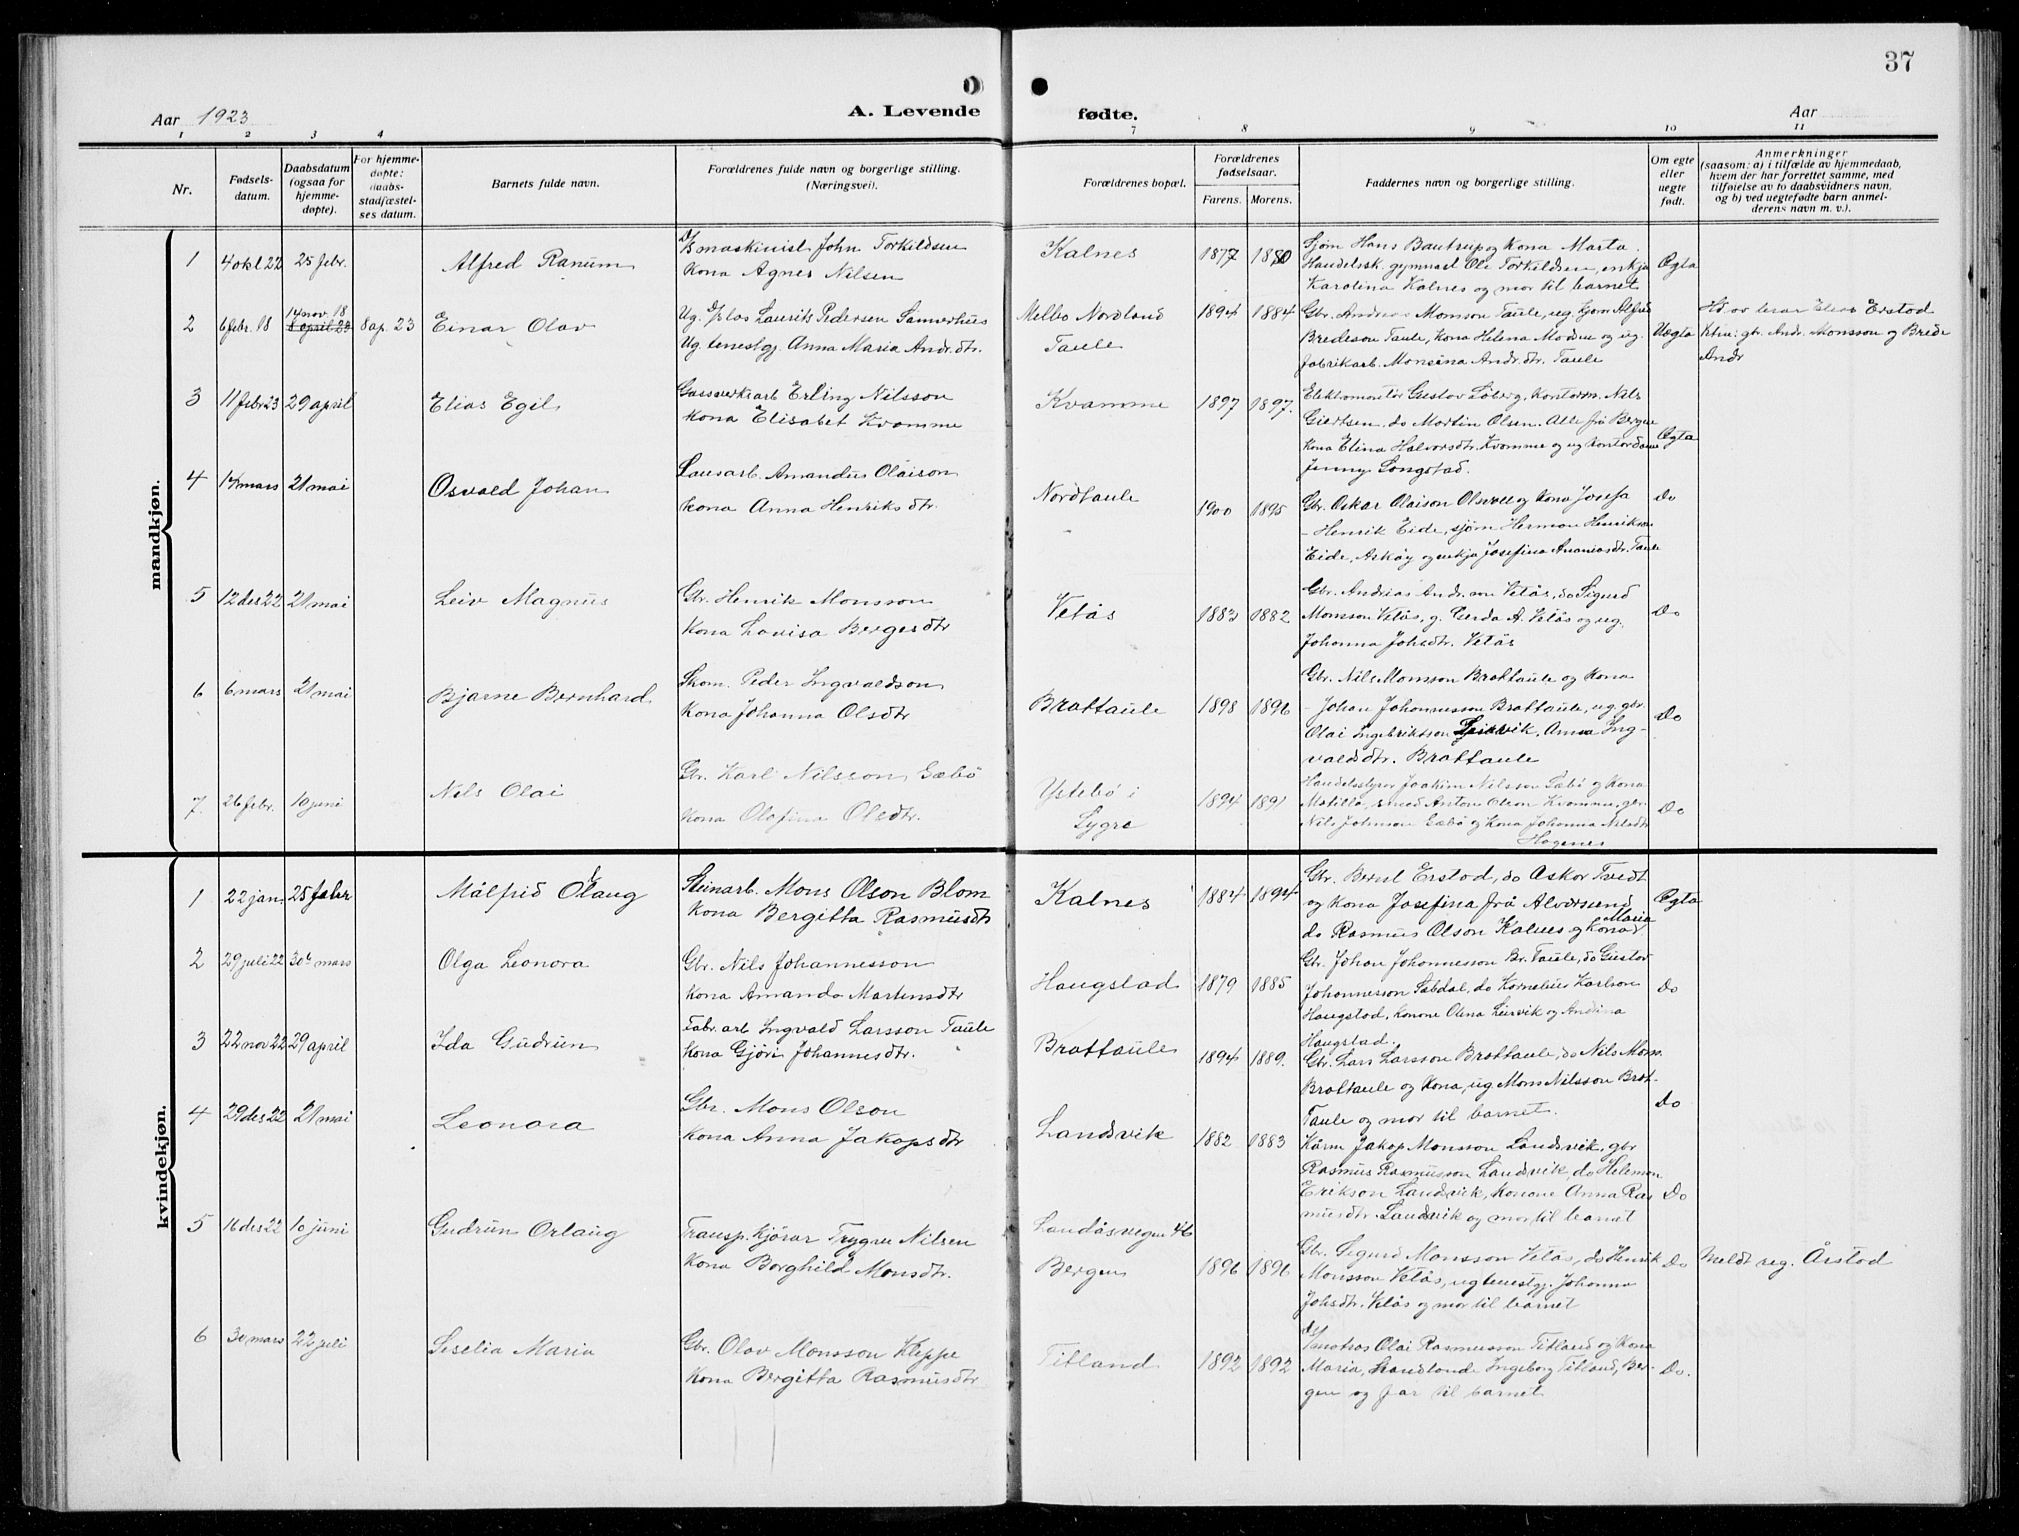 37
Aar 1923
A. Levende
fødte.
Aar
1 2 3 4
7 8 9 10 11
Nr.
Fødsels-
datum.
Daabsdatum
(ogsaa for
hjemme-
døpte).
For hjemme-
døpte:
daabs-
stadfæstel-
ses datum.
Barnets fulde navn.
Forældrenes fulde navn og borgerlige stilling.
(Næringsvei).
Forældrenes bopæl.
Forældrenes
fødselsaar.
Farens. Morens.
Faddernes navn og borgerlige stilling.
Om egte
eller
uegte
født.
Anmerkninger
(saasom: a) i tilfælde av hjemmedaab,
hvem der har forrettet samme, med
tilføielse av to daabsvidners navn,
og b) ved uegtefødte barn anmel-
derens navn m. v.).
mandkjøn.
1 4 okt 22 25 febr. Alfred Ranum
maskinist John Torkildsen
Kona Agnes Nilsen
Kalnes 1877 1880
Sjøm Hans Bautrup og Kona Marta
Handelssk. gymnast Ole Torkildsen, enkja
Karolina Kalnes og mor til barnet
Ægta
2 6 febr. 18 14 nov. 18 8 april 23 8 ap. 23 Einar Olav
Ug. Laurits Pedersen Sannerhus
Ug. tenestgj. Anna Maria Andr.dtr.
Melbo Nordland
Taule
1894 1884
Gbr. Andreas Monson Taule, ug. Alfred
Bredeson Taule, Kona Helena og ug.
fabrikarb. Monsina Andr.dtr. Taule
Uægta
Hd. av lærar Erstad
gbr. Andr. Monsson og Brede
Andr
3 11 febr 23 29 april Elias Egil
Gassverksarb Erling Nilsson
Kona Elisabet Kvamme
Kvamme 1897 1897.
Elektromontør Gustav Løberg, Kontorm. Nils
Giertsen, do Martin Olsen. Alle frå Bergen
Kona Elina Halvorsdtr. Kvamme og ug kontordame
Jenny Longstad.
Ægta
4 14 mars 21 mai Osvald Johan
Lausarb. Amandus Olaison
Kona Anna Henriksdtr.
Nordtaule 1900 1895
Gbr. Oskar Olaison og Kona Josefa
- Henrik Eide, sjøm Herman Henrikson
Eide, Askøy og enkja Josefina Ananiasdtr. Taule
Do
5 12 des 22 21 mai Leiv Magnus
Gbr. Henrik Monsson
Kona Lovisa Bergesdtr
Vetås 1883 1882
Gbr. Andrias Andr. son Vetås, do Sigurd
Monsson Vetås, g. Gerda A. Vetås og ug.
Johanna Johsdtr. Vetås
Do
6 6 mars 21 mai Bjarne Bernhard
Skom. Peder Ingvaldson
Kona Johanna Olsdtr
Brattaule 1898 1896
Gbr. Nils Monsson Brattaule og Kona
- Johan Johannesson Brattaule, ug. gbr.
Olai Ingebriktson Leirvik, Anna Ing-
valdsdtr. Brattaule
Do
7. 26 febr. 10 juni Nils Olai
Gbr. Karl Nilsson Sæbø
Kona Olofina Olsdtr.
Ystebø i
Lygre
1894 1891
Handelsstyrer Joakim Nilsson Sæbø og Kona
Matilla, smed Anton Olson Kvamme, gbr.
Nils Johnson Sæbø og Kona Johanna Nilsdtr
Hopenes
Do
kvindekjøn.
1 22 jan. 25 febr Målfrid Olaug
Steinarb. Mons Olson Blom
Kona Bergitta Rasmusdtr
Kalnes 1884 1894
Gbr. Bernt Erstad, do Askor Tvedt
og Kona Josefina frå Alversund
do Rasmus Olson Kalnes og Kona Maria
Ægta
2 29 juli 22 30te mars Olga Leonora
Gbr. Nils Johannesson
Kona Amanda Martensdtr
Haugstad 1879 1885
Gbr. Johan Johannesson Br. Taule, do Gustav
Johannesson Sabdal, do Kornelius Karlson
Haugstad, Konone Olena Leirvik og Andina
Haugstad.
Do
3 22 nov 22 29 april Ida Gudrun
Fabr. arb Ingvald Larsson Taule
Kona Gjøri Johannesdtr.
Brattaule 1894 1889.
Gbr. Lars Larsson Brattaule, do Nils Mons.
Brattaule og Kona, ug Mons Nilsson Brat-
Taule og mor til barnet.
Do
4 29 des 22 21 mai Leonora
Gbr. Mons Olson
Kona Anna Jakopsdtr
Landsvik 1882 1883
Kårm Jakop Monsson Landsvik, gbr
Rasmus Rasmusson Landsvik, do Helemon
Erikson Landsvik, Konone Anna Ras
musdtr. Landsvik og mor til barnet
Do
5 16 des 22 10 juni Gudrun Orlaug
Transp. kjørar Trygve Nilsen
Kona Borghild Monsdtr.
Landåsvegen 46
Bergen
1896 1896
Gbr. Sigurd Monsson Vetås, do Henrik
Monsson Vetås, ug tenestgj. Johanna
Johsdtr. Vetås og mor til barnet
Do
Meldt reg. Årstad
6 30 mars 22 juli Seselia Maria
Gbr. Olav Monsson Kleppe
Kona Bergitta Rasmusdtr
Titland 1892 1892
Olai Rasmusson Titland og Kona
Maria, Handlande Ingeborg Titland, Ber-
gen og far til barnet
Do.